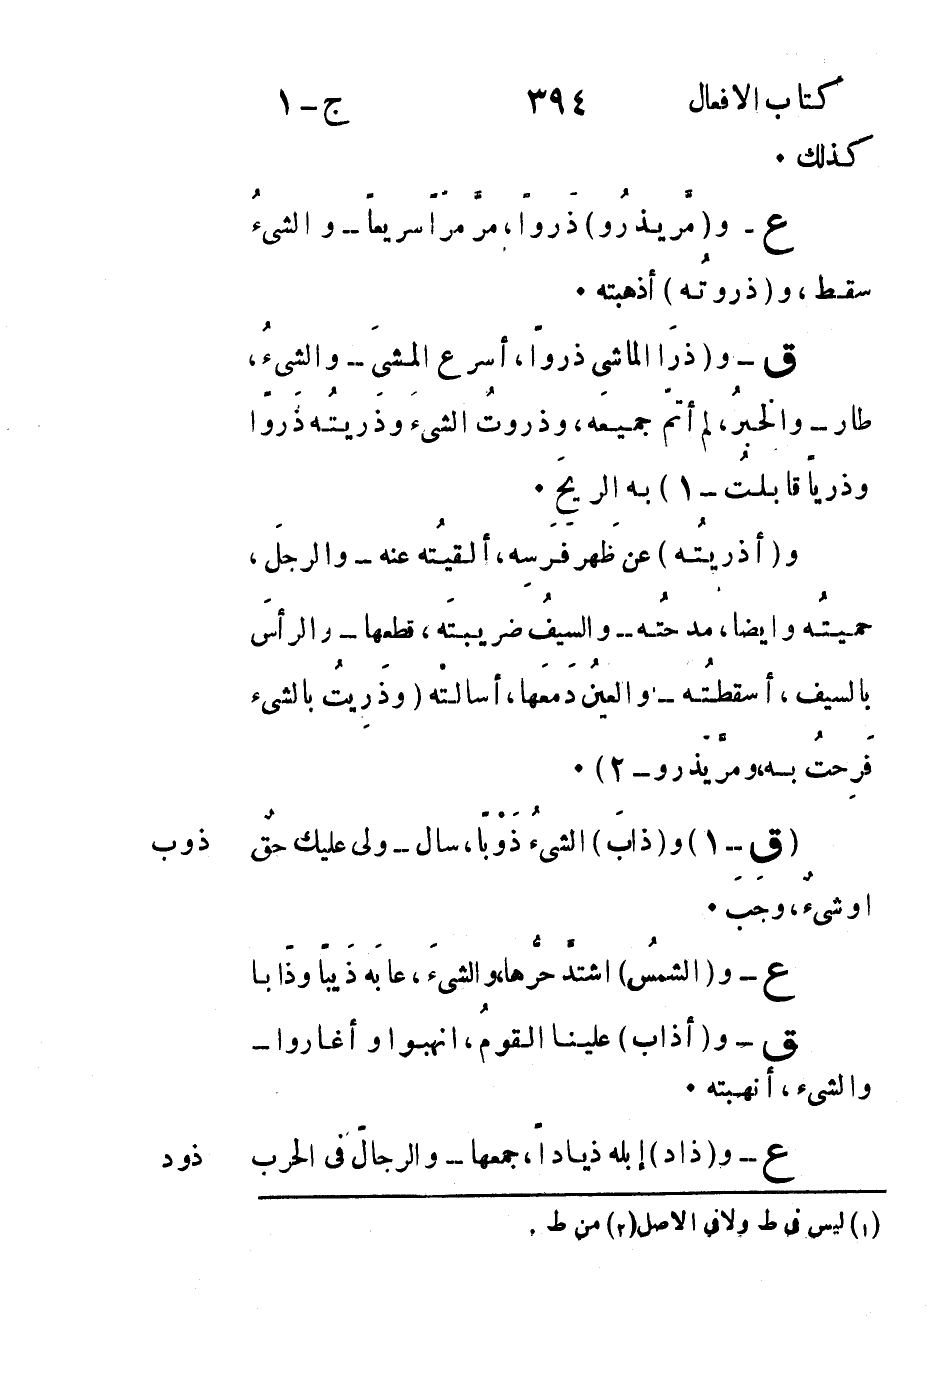 كتاب الافعال ٣٩٤ ج - ١
كذلك •
ع - و(مَّر يـذرُو) ذَرواً، مرَّ مرّاً سريعاً - و الشىءُ
سقـط، و(ذروتُـه) أذهبته •
ق - و( ذرَا الماشى ذرواً، أسرع المـشىَ - والشىءُ،
طار - والخـبرُ، لم أتمّ جميعَه، وذروتُ الشىءَ وذَريتُـه ذَروًا
وذرياً قابـلتُ - ١) بـه الريحَ •
و(أذريتُـه) عن ظَهر فَرَسِه، ألـقيتُه عنه - والرجلَ،
حميتُـه وايضا، مدحتُـه - والسيفُ ضريبـتَه، قطعها - والرأسَ
بالسيف، أسقطتُـه - و العينُ دَمعَها، أسالـتْه (وذَرِيتُ بالشىء
فَرِحتُ بـه، ومرَّ يَذرو - ٢) •
(ق - ١) و(ذابَ) الشىءُ ذَوْبًا، سال - ولى عليك حقٌ ذوب
اوشىءٌ، وجَبَ •
ع - و(الشمسُ) اشتدَّ حرُّها، والشىءَ، عابَه ذَيبًا وذَابا
ق - و(أذاب) علينـا القومُ، انهبـوا و أغاروا -
والشىء، أنهـبته •
ع - و(ذاد) إبله ذيـاداً، جمعها - والرجالَ فى الحرب ذود
(١) ليس فى ط ولافى الاصل (٢) من ط .